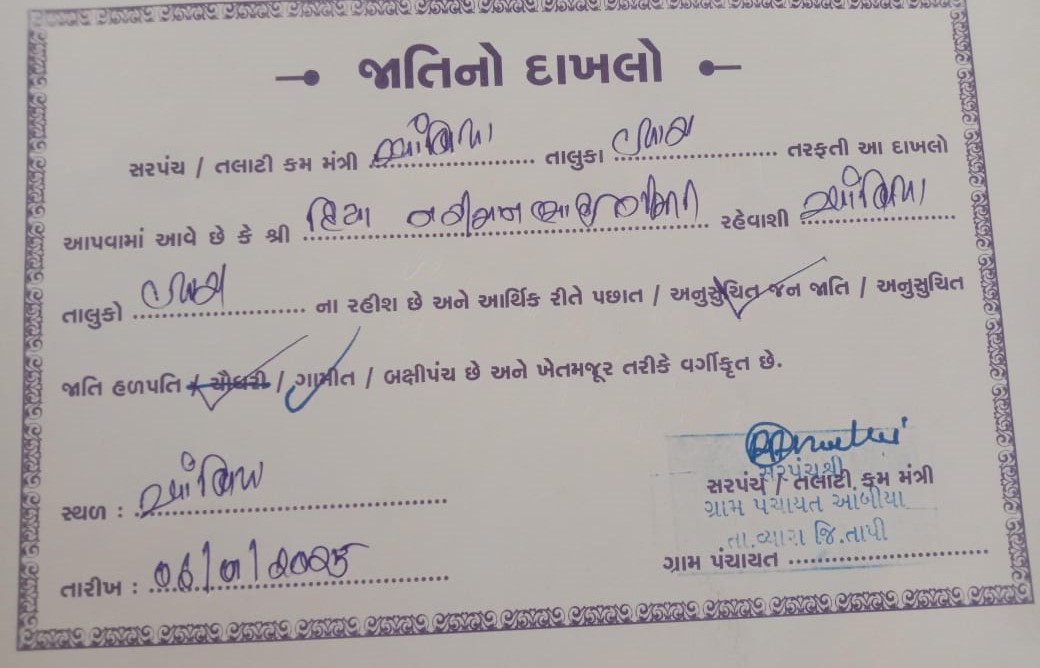 જાતિનો દાખલો
સરપંચ / તલાટી કમ મંત્રી આંબિયા તાલુકા વ્યારા તરફતી આ દાખલો
આપવામાં આવે છે કે શ્રી રહેવાશી આંબિયા
તાલુકો વ્યારા ના રહીશ છે અને આર્થિક રીતે પછાત / અનુસુચિત જન જાતિ / અનુસુચિત
જાતિ હળપતિ / ચૌધરી / ગામીત / બક્ષીપંચ છે અને ખેતમજૂર તરીકે વર્ગીકૃત છે.
સરપંચશ્રી
સ્થળ : આંબિયા સરપંચ / તલાટી કમ મંત્રી
ગ્રામ પંચાયત આંબીયા
તા.વ્યારા જિ.તાપી
તારીખ : ગ્રામ પંચાયત